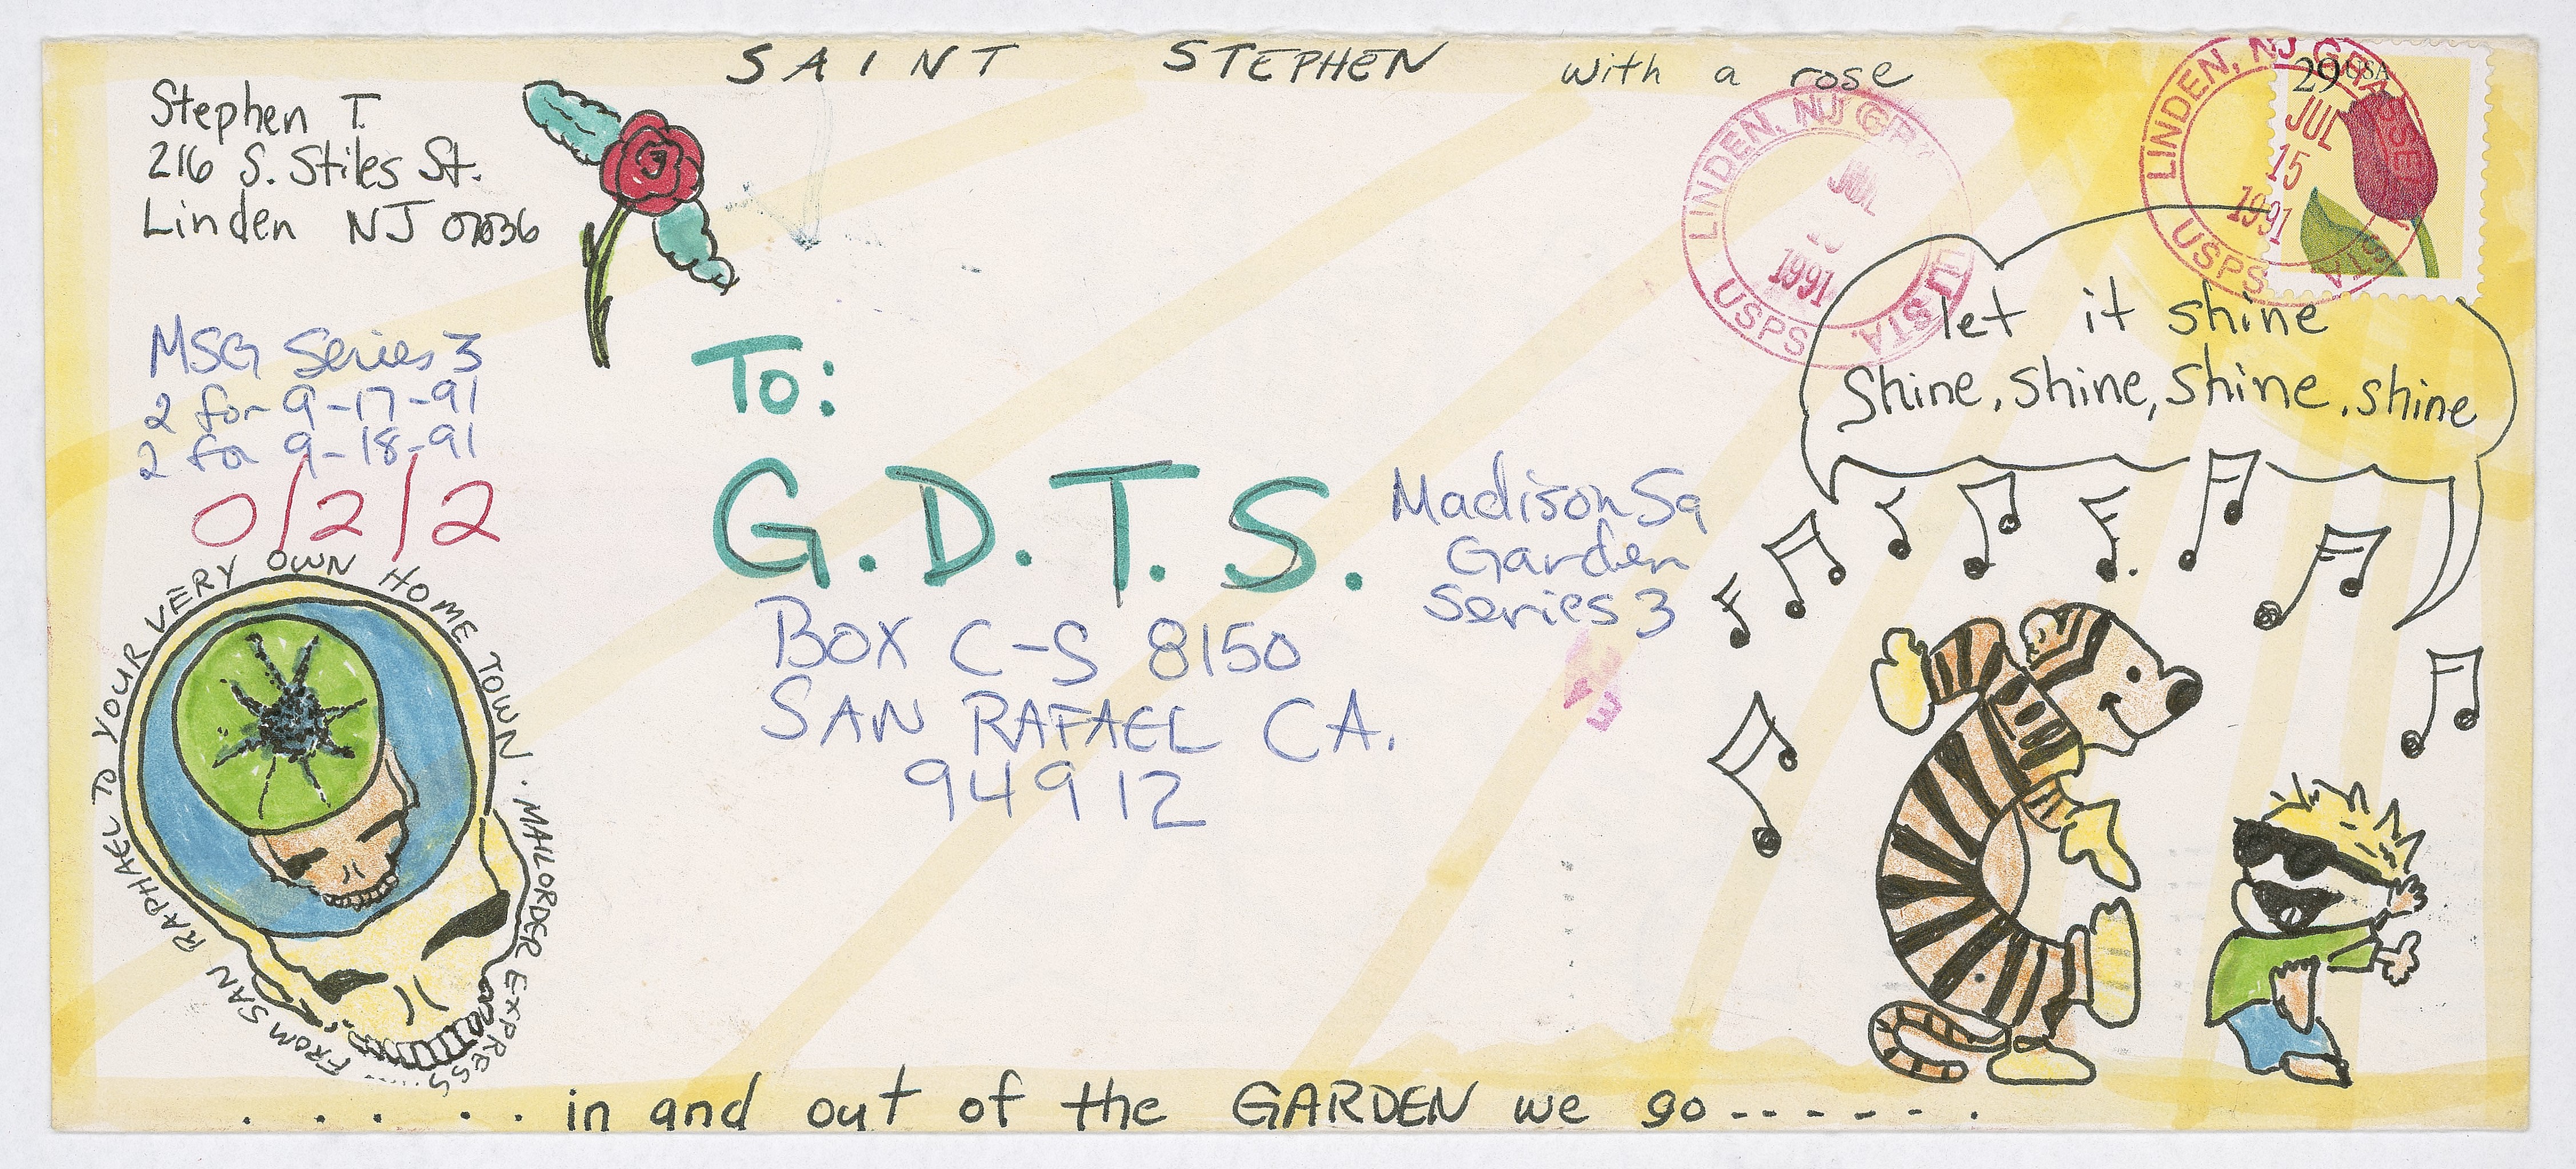 SAINT STEPHEN with a rose
Stephen T.
216 S. Stiles St.
Linden NJ 07036
MSG Series 3
2 for 9-17-91
2 for 9-18-91
0/2/2
FROM SAN RAPHAEL TO YOUR VERY OWN HOME TOWN. MAILORDER EXPRESS....
To:
G.D.T.S.
Box C-S 8150
SAN RAFAEL CA.
94912
Madison Sq
Garden
Series 3
LINDEN, NJ
JUL
1991
USPS
STA.
29 USA
LINDEN, NJ
JUL
15
1991
USPS
STA.
let it shine
Shine, Shine, Shine, shine
. . . . . . in and out of the GARDEN we go ------.